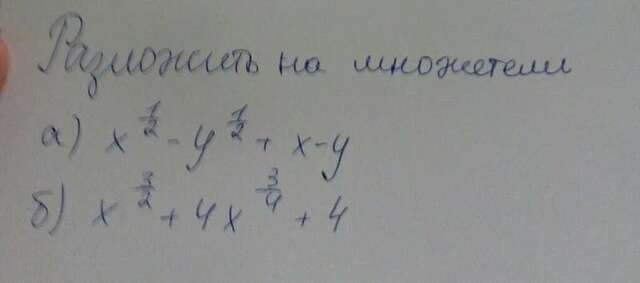 Разложить на множетели
а) x^{1/2} - y^{1/2} + x - y
б) x^{3/2} + 4x^{3/4} + 4